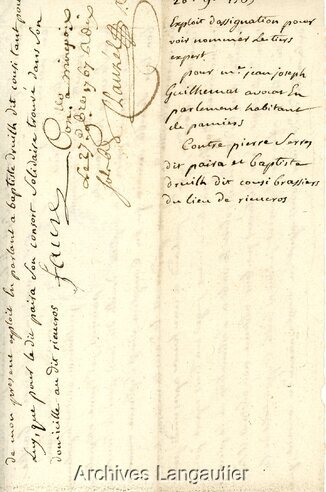 Exploit d'assignation pour
voir nommer le tiers
expert,
pour mr jean joseph
Guilhemat avocat en
parlement habitant
de pamiers
Contre pierre Serres
dit paira et baptiste
druilh dit cousi brassiers
du lieu de rieucros
de mon present exploit en parlant a baptiste druilh dit cousi tant pour
Luy, que pour le dit paira Son consort Solidaire trouvé dans Son
domicille au dit rieucros
faure
Con
a mirepoix
Le 27 d
Archives Langautier